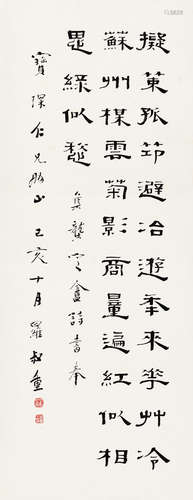 擬策孤筇避冶遊年來華艸冷
蘇州楳雲菊影商量遍紅似相
思綠似愁 集龔定盦詩書奉
寶琛仁兄 正 己亥十月 羅叔重